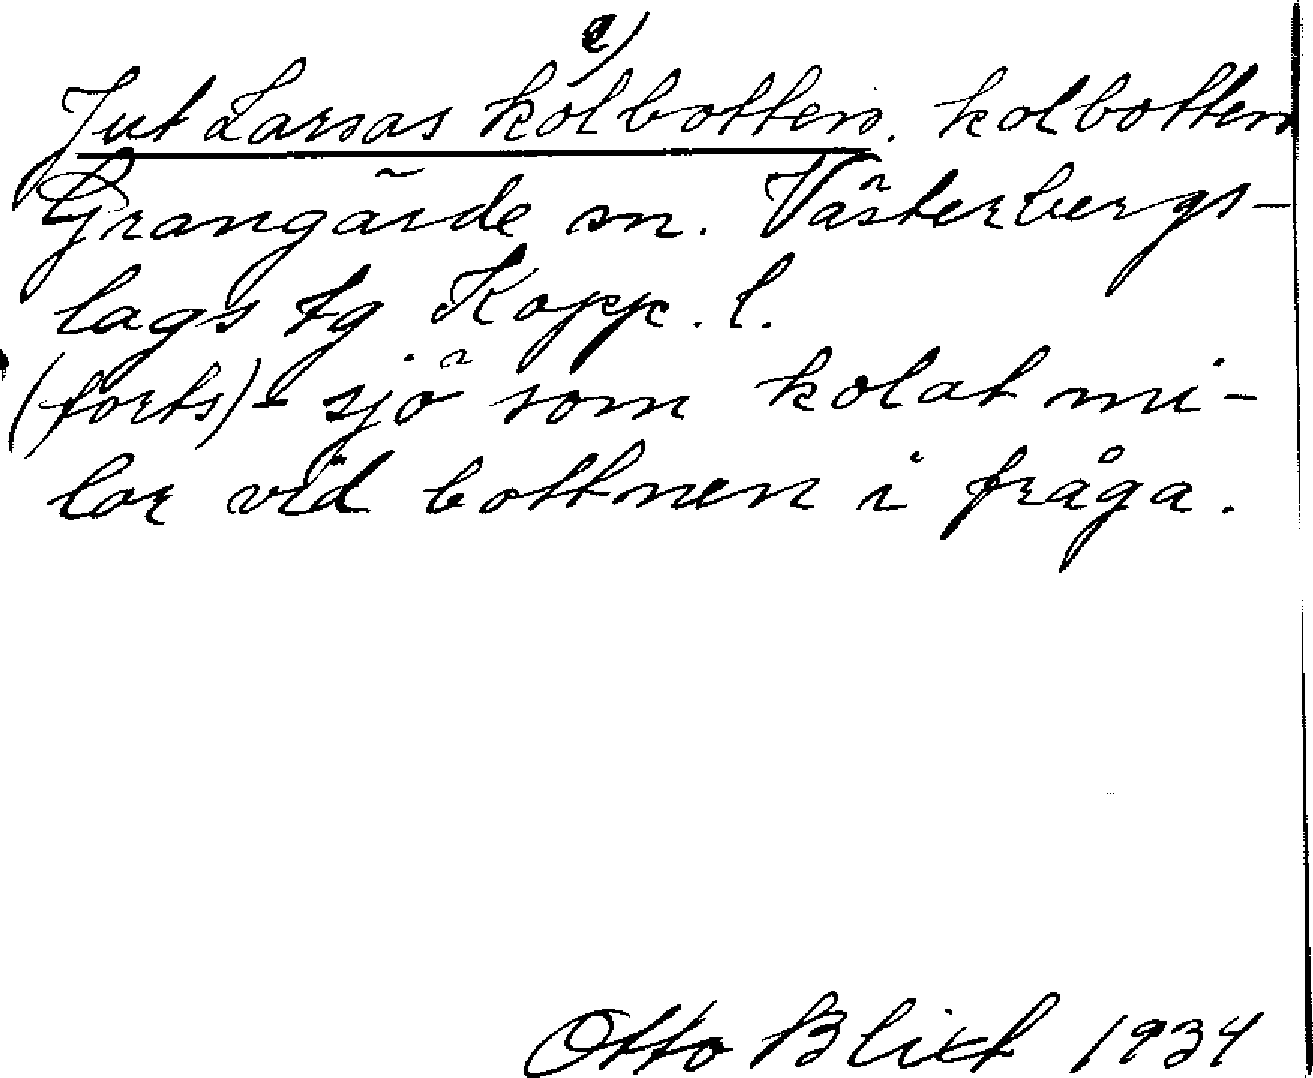 e)
Jut Larsas kolbotten. kolbotten
Grangärde sn. Västerbergs-
lags tg Kopp. l.
(forts) - sjö som kolat mi-
lor vid bottnen i fråga.
Otto Blixt 1934